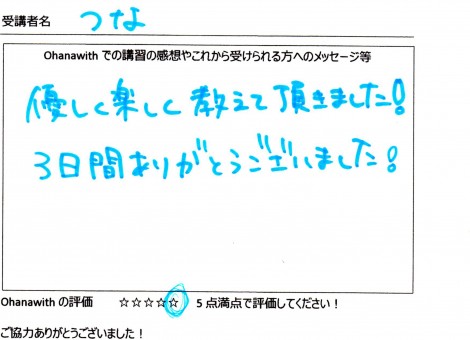 受講者名 つな
Ohanawith での講習の感想やこれから受けられる方へのメッセージ等
優しく楽しく教えて頂きました!
3日間ありがとうございました!
Ohanawith の評価 ☆☆☆☆☆ 5点満点で評価してください！
ご協力ありがとうございました！